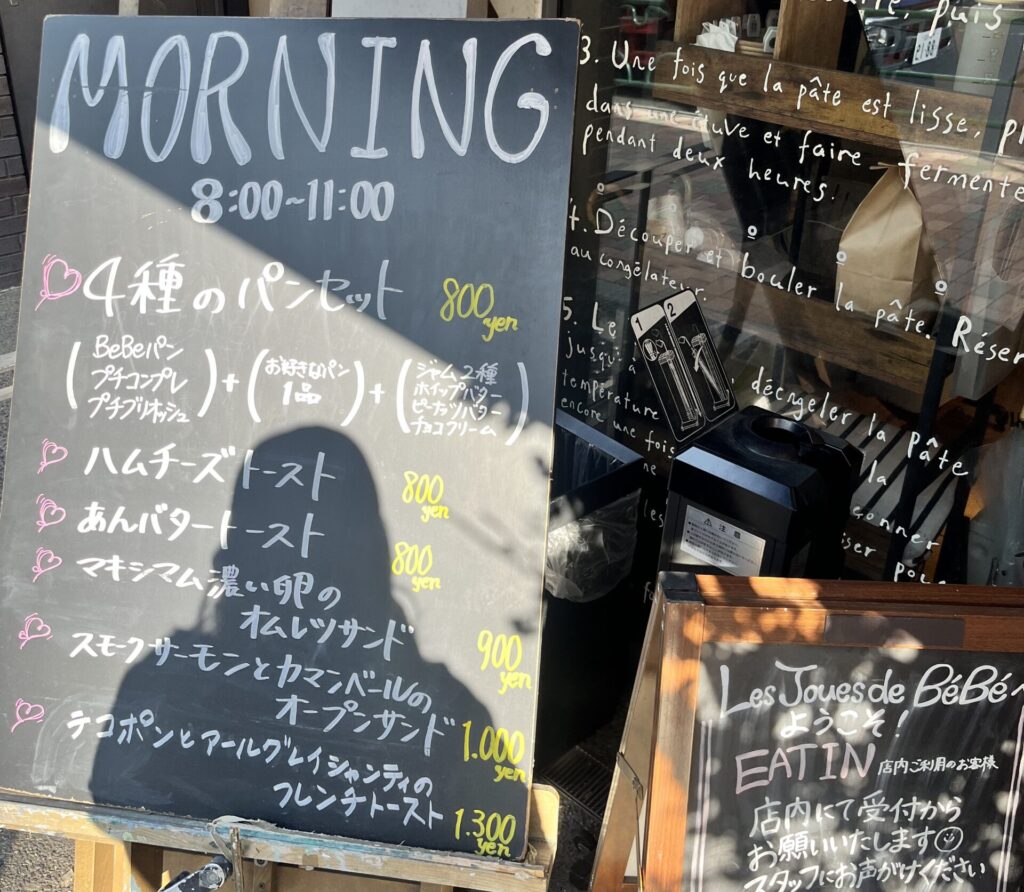 MORNING
8:00~11:00
4種のパンセット 800 yen
(BeBeパン プチコンプレ プチブリオッシュ) + (お好きなパン 1品) + (ジャム2種 ホイップバター ピーナッツバター チョコクリーム)
ハムチーズトースト 800 yen
あんバタートースト 800 yen
マキシマム濃い卵の
オムレツサンド 900 yen
スモークサーモンとカマンベールの
オープンサンド 1.000 yen
デコポンとアールグレイシャンティの
フレンチトースト 1.300 yen
puis
3. Une fois que la pâte est lisse,
dans une étuve et faire fermente
pendant deux heures.
4. Découper et bouler la pâte. Réser
au congélateur.
5. Le
jusqu'à
, décongeler la pâte
température
la
encore une fois
ne
les
çonner
iser pou
1 2
注意
Les Joues de BéBé へ
ようこそ!
EAT IN 店内ご利用のお客様
店内にて受付から
お願いいたします
スタッフにお声がけください